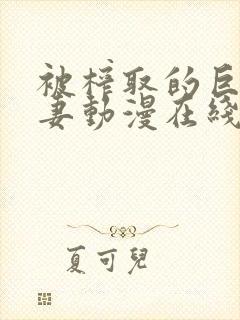 被榨取的巨
妻動漫在綫
夏可兒